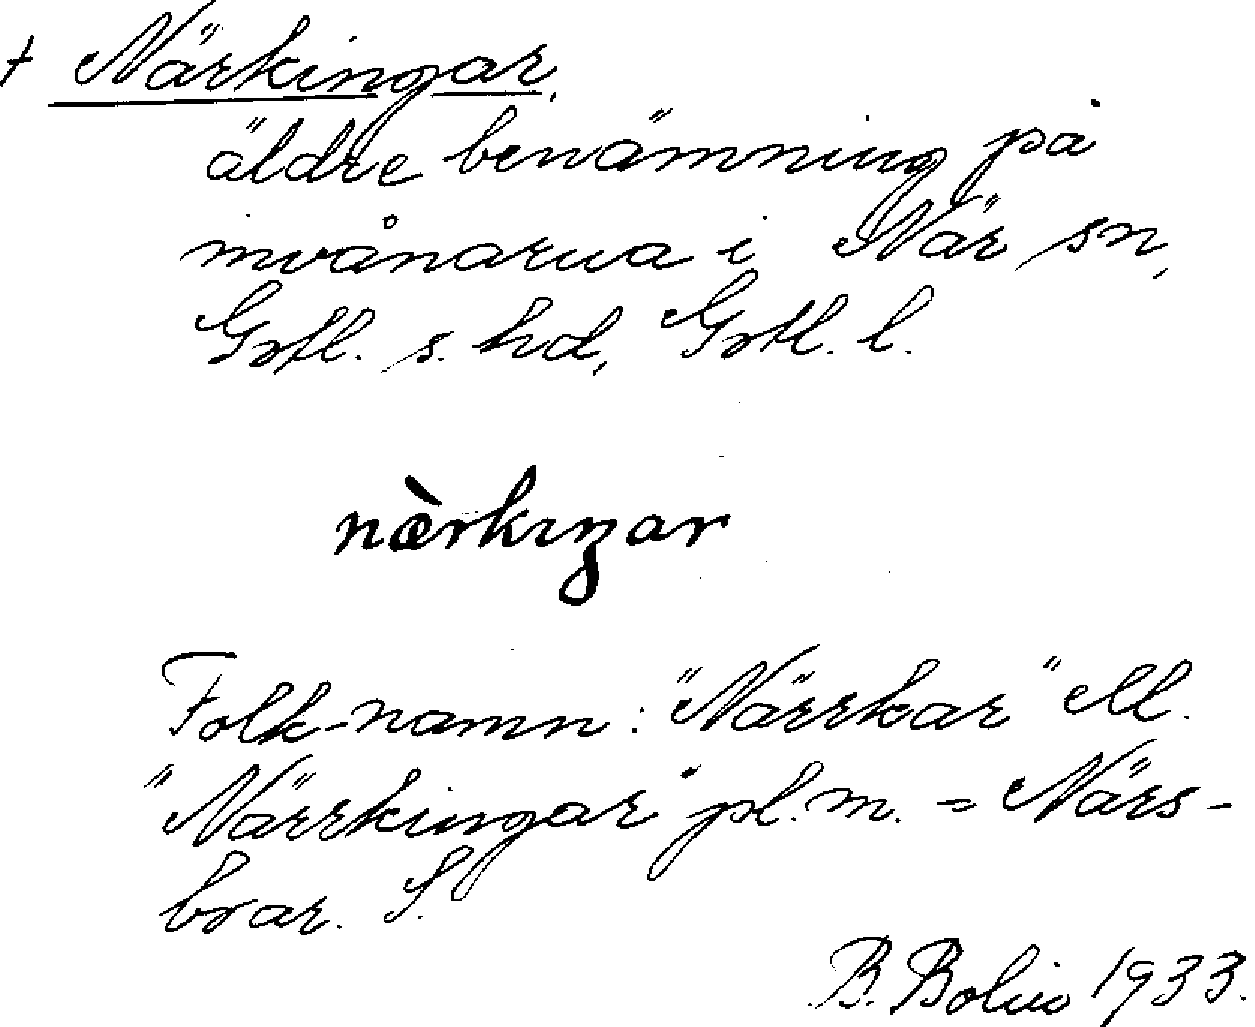 † Närkingar,
äldre benämning på
invånarna i När sn,
Gotl. s. hd, Gotl. l.
nærkıŋar
Folk-namn: "Närrkar" M.
"Närrkingar" pl. m. = Närs-
boar. S.
B. Bolin 1933.